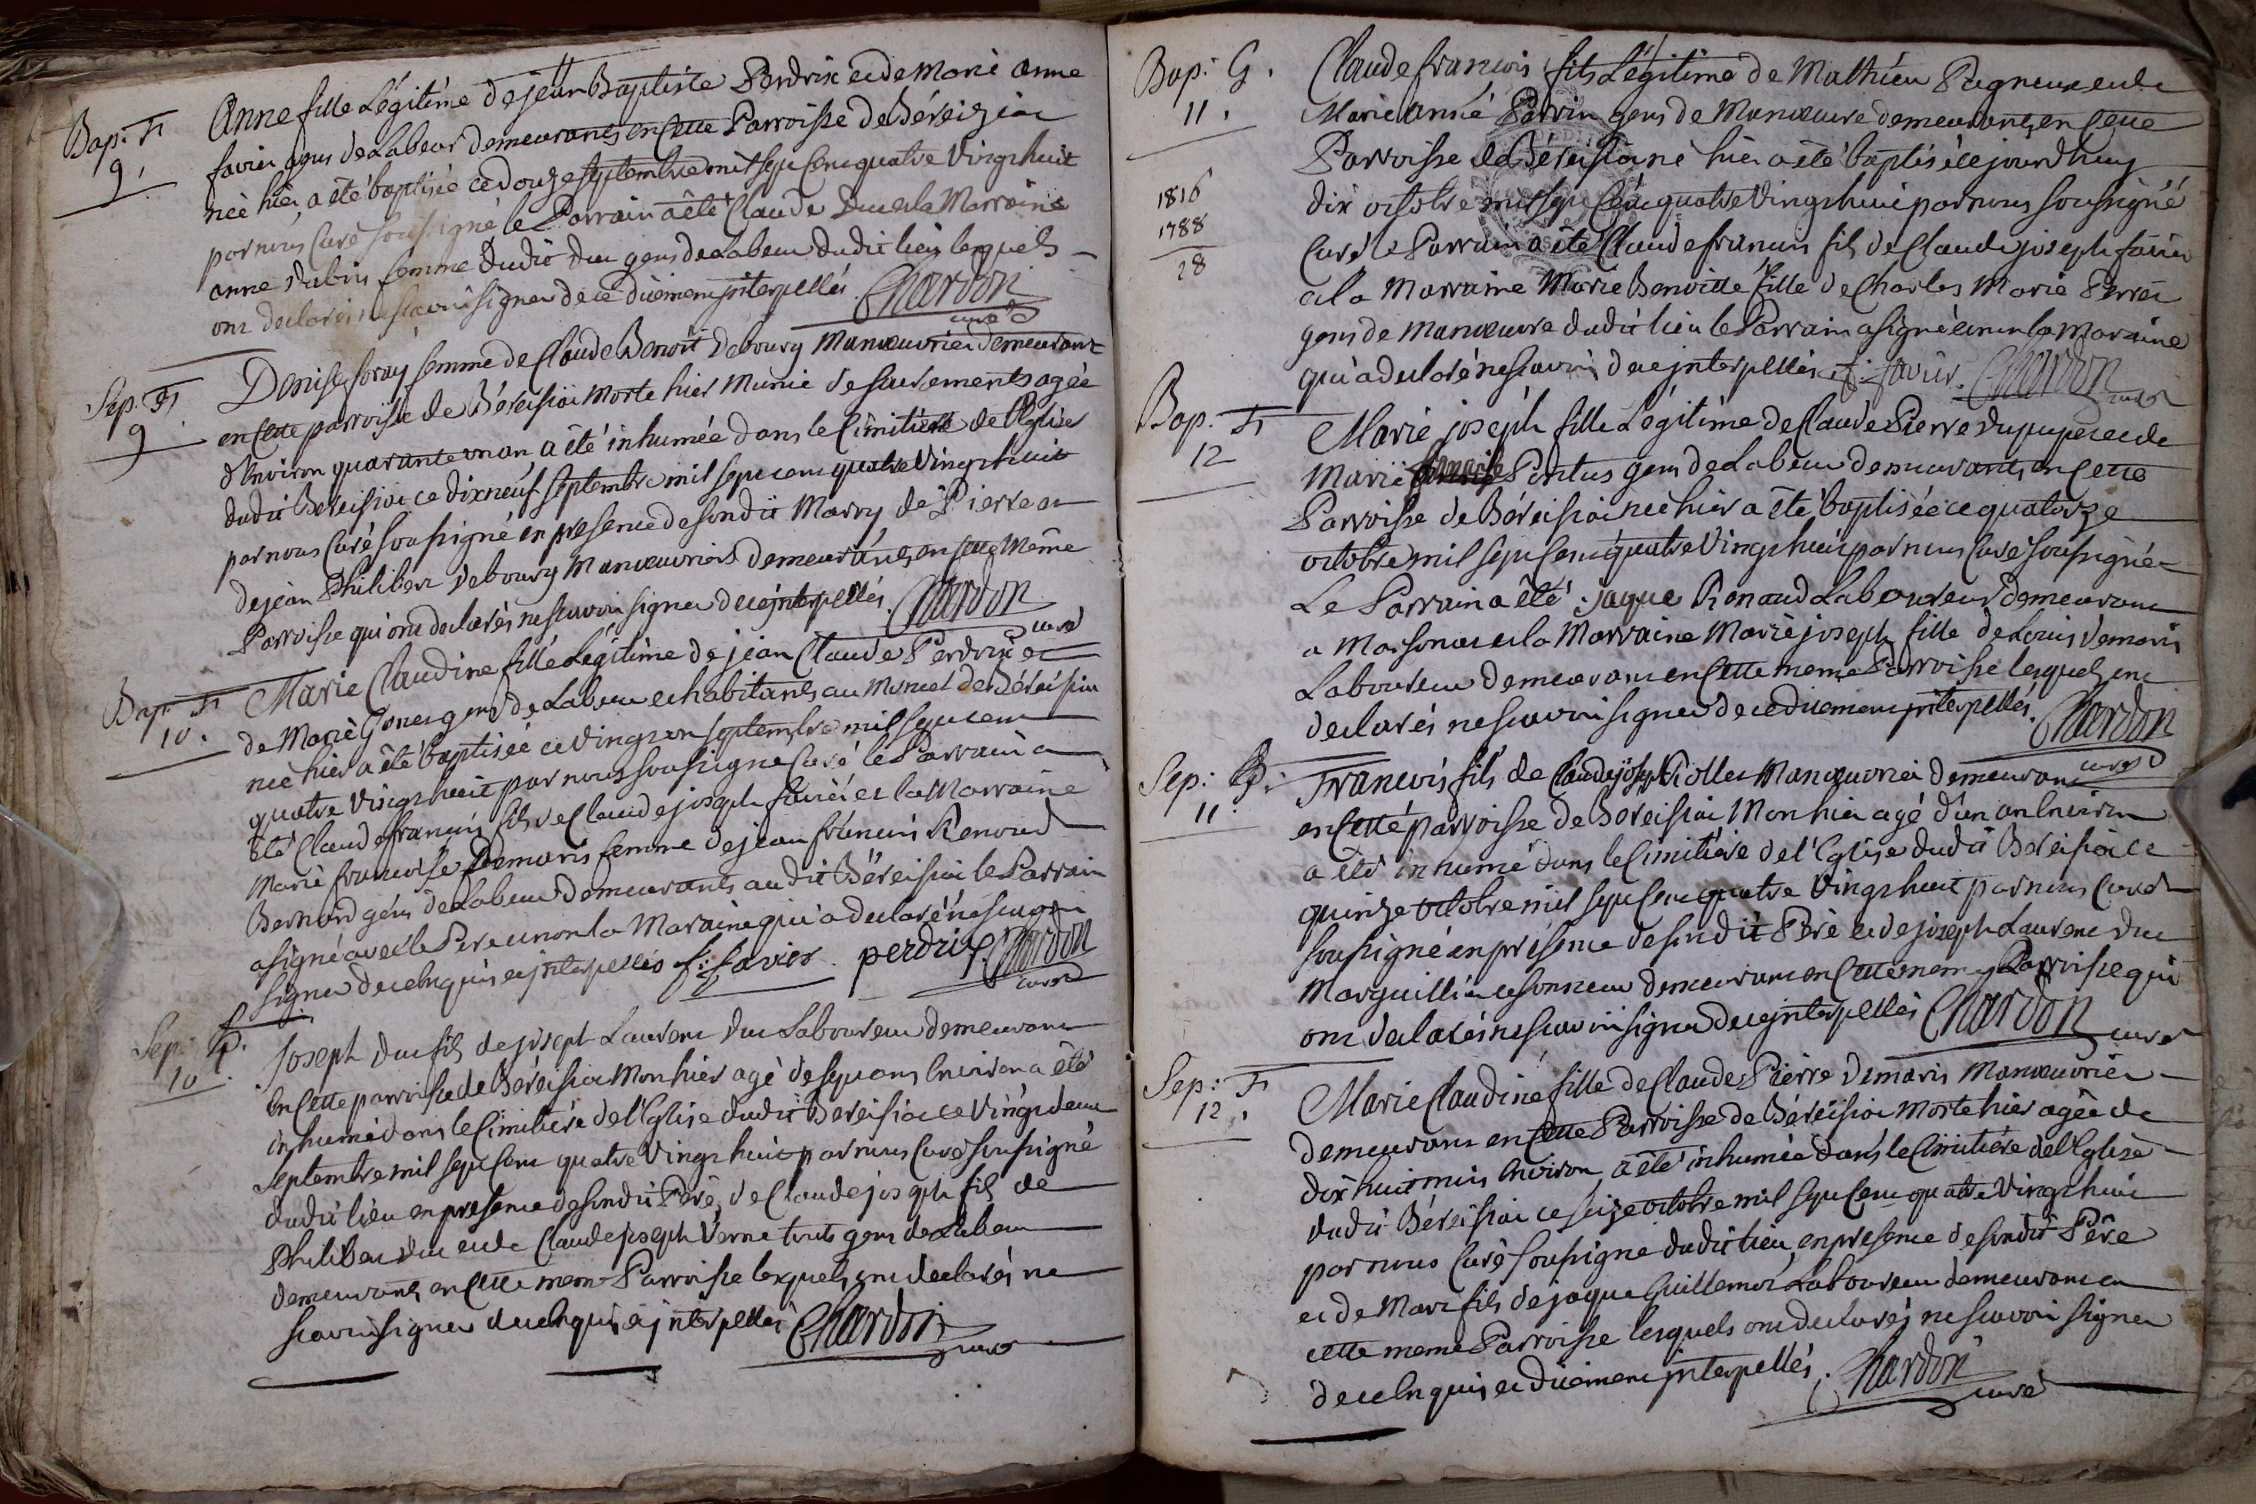 Bap: F
9.
Anne fille Légitime de jean Baptiste Perdrix et de Marie Anne
favier gens de Labeur demeurants en Cette Parroisse de Béreiziat
née hier a été baptisée ce douze septembre mil sept Cent quatre Vingt huit
par nous Curé soussigné le Parrain a été Claude Duc et la Marraine
anne femme dudit duc gens de Labeur dudit lieu lesquels
ont declarés ne scavoir signer de ce düement interpellés. Chardon
curé
Sep. F
9
Denise foray femme de Claude Benoit debourg Manœuvrier demeurant
en Cette parroisse de Béreisiat morte hier Munie de sacrements agée
d'Environ quarante un an a été inhumée dans le Cimitiere de l'Eglise
dudit Bereisiat ce dixneuf septembre mil sept cent quatre Vingt huit
par nous Curé soussigné en presence de sondit Marry de Pierre et
de jean Philibert debourg Manœuvriers demeurants en cette Même
Parroisse qui ont declarés ne scavoir signer de ce interpellés. Chardon
curé
Bap. F
10.
Marie Claudine fille Légitime de jean Claude Perdrix et
de Marie gens de Labeur et habitants au de Béreisiat
née hier a été baptisée ce Vingt un septembre mil sept cent
quatre Vingt huit par nous soussigné Curé le Parrain a
été Claude françois fils de Claude joseph favier et la Marraine
Marie françoise Demaris femme de jean françois Renoud
Bernard gens de Labeur demeurants au dit Béreisiat le Parrain
a signé avec le Pere et non la Maraine qui a declaré ne scavoir
signer de ce enquis et interpellés f: favier perdrix. Chardon
curé
Sep: P.
10.
Joseph duc fils de joseph Laurent duc Laboureur demeurant
En Cette parroisse de Béreisiat Mort hier agé de sept ans Environ a été
inhumé dans le Cimitiere de l'Eglise dudit Bereisiat ce Vingt deux
septembre mil sept Cent quatre Vingt huit par nous Curé soussigné
dudit lieu en presence de sondit Pere, de Claude joseph fils de
Philibert duc et de Claude joseph Verne touts gens de Labeur
demeurants en Cette meme Parroisse lesquels ont declarés ne
scavoir signer de ce enquis et interpellés Chardon
curé
Bap: G.
11.
1816
1788
28
Claude françois fils Légitime de Mathieu Pagneux et de
Marie Anne Perrin gens de Manœuvre demeurants en Cette
Parroisse de Béreisiat né hier a été baptisé ce jourdhuy
dix octobre mil sept Cent quatre Vingt huit par nous soussigné
Curé le Parrain a été Claude francois fils de Claude joseph favier
et la Marraine Marie Benoitte fille de Charles Marie
gens de Manœuvre dudit lieu le Parrain a signé et non la Maraine
qui a declaré ne scavoir de ce interpellés f. favier. Chardon
curé
Bap. F
12
Marie joseph fille Légitime de Claude Pierre et de
Marie Pontus gens de Labeur demeurants en Cette
Parroisse de Béreisiat née hier a été baptisée ce quatorze
octobre mil sept Cent quatre Vingt huit par nous Curé soussigné
Le Parrain a été jaque Renaud Laboureur demeurant
a Marsonas et la Marraine Marie joseph fille de Louis demaris
Laboureur demeurant en Cette meme Parroisse lesquels ont
declarés ne scavoir signer de ce düement interpellés. Chardon
curé
Sep: P.
11.
Francois fils de Claude joseph Manœuvrier demeurant
en Cette parroisse de Bereisiat Mort hier agé d'un an Environ
a été inhumé dans le Cimitiere de l'Eglise dudit Bereisiat ce
quinze octobre mil sept Cent quatre Vingt huit par nous Curé
soussigné en présence de sondit Père et de joseph Laurent Duc
Marguillier et sonneur demeurant en Cette meme Parroisse qui
ont declarés ne scavoir signer de ce interpellés Chardon
curé
Sep: F
12.
Marie Claudine fille de Claude Pierre Demaris Manœuvrier
demeurant en Cette Parroisse de Béreisiat morte hier agée de
dix huit mois Environ a été inhumée dans le Cimitiere de l'Eglise
dudit Béreisiat ce seize octobre mil sept Cent quatre Vingt huit
par nous Curé soussigné dudit lieu en presence de sondit Père
et de Marc fils de jaque Guillemot Laboureur demeurant en
cette meme Parroisse lesquels ont declarés ne scavoir signer
de ce Enquis et düement interpellés. Chardon
curé